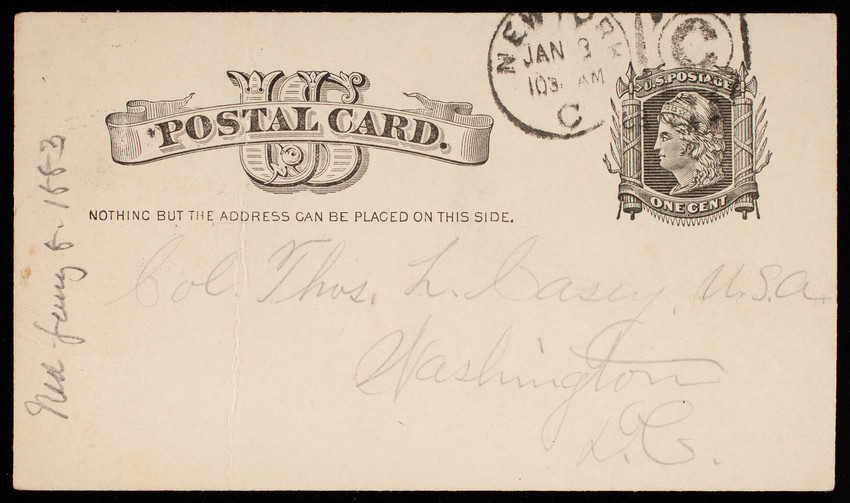 NEW YORK
JAN 8
1030 AM
C
C
U.S. POSTAGE
ONE CENT
US
*POSTAL CARD.
NOTHING BUT THE ADDRESS CAN BE PLACED ON THIS SIDE.
Col. Thos. L. Casey, U.S.A.
Washington
D.C.
8. 1883